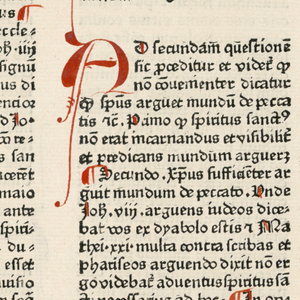 us
eccle⸗
Joh̄. iiij
signū
us di
entior
d Jo⸗
cō te⸗
us san
iacent
maio
ante
spiri⸗
du⸗
esset
uisio
Ad secundam questionē
sic p̄ceditur et videt̄ ꝙ
nō conuementer dicatur
ꝙ sp̄us arguet mundū de pecca
tis ⁊c̄. P̄amo ꝙ spiritus sanct⁹
nō erat incarnandus et visibilit̄
et predicans mundum arguerꝫ
Secundo. Xp̄us sufficiēter ar
guit mundum de peccato. Vnde
Joh̄. viij. arguens iudeos dice⸗
bat vos ex dyabolo estis ⁊ Ma
thei. xxi. multa contra scribas et
phariseos arguendo dixit nō er
go videbat̄ aduentus spiritus san